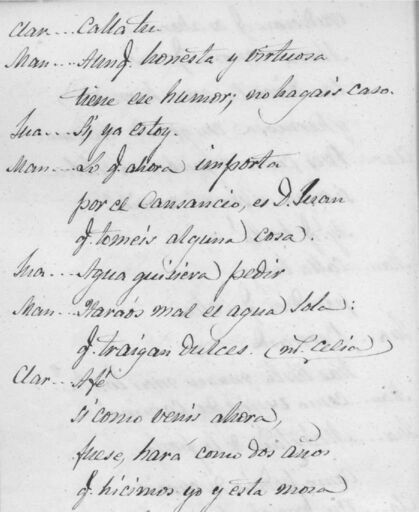 Clar... Calla tu.
Man... Aunq. honesta y virtuosa
tiene ese humor; no hagais caso.
Jua... Si, ya estoy.
Man... Lo q. ahora importa
por el cansancio, es D. Juan
q. tomeis alguna cosa.
Jua... Agua quisiera pedir
Man... Haráos mal el agua sola:
q. traigan dulces. (Celia)
Clar... Afé
si como venis ahora,
fuese, hará como dos años
q. hicimos yo y esta moza